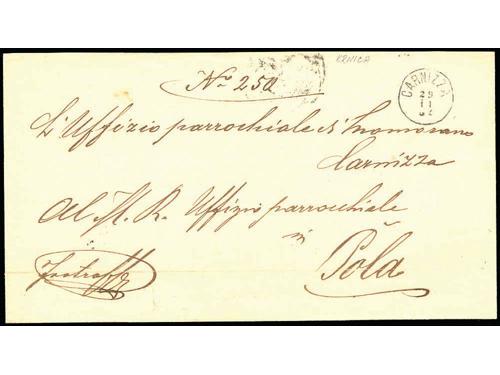 KRNICA
Nro 250
CARNIZZA
29
11
L'Uffizio parrochiale di
Carnizza
Al M. R. Uffizio parrocchiale
in
Pola